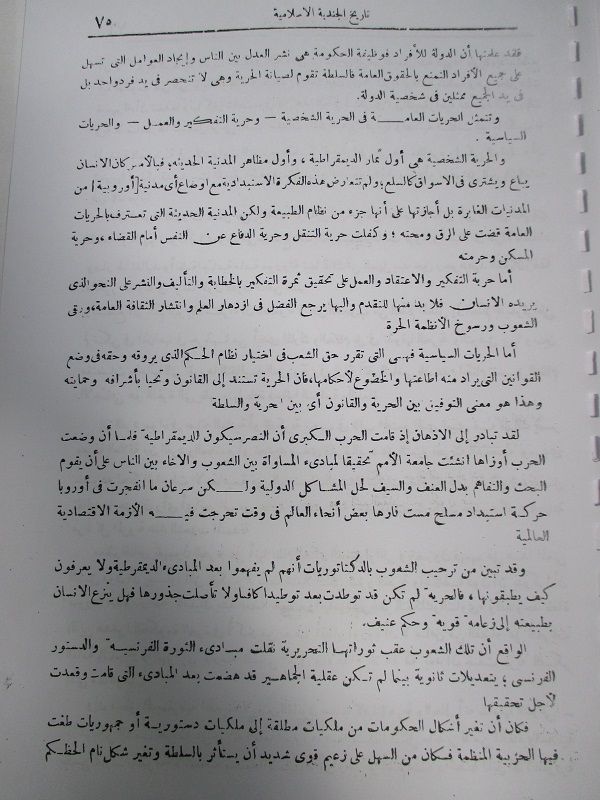 تاريخ الجندية الاسلامية
٧٥
فقد علمتها أن الدولة للأفراد فوظيفة الحكومة هى نشر العدل بين الناس وإيجاد العوامل التى تسهل
على جميع الأفراد التمتع بالحقوق العامة فالسلطة تقوم لصيانة الحرية وهى لا تنحصر فى يد فرد واحد بل
فى يد الجميع ممثلين فى شخصية الدولة.
وتتمثل الحريات العامة فى الحرية الشخصية – وحرية التفكير والعمل – والحريات
السياسية .
والحرية الشخصية هى أول ثمار الديمقراطية ، وأول مظاهر المدنية الحديثة، فبالأمس كان الانسان
يباع ويشترى فى الاسواق كالسلع؛ ولم تتعارض هذه الفكرة الاستبدادية مع اوضاع أى مدنية [أوروبية] من
المدنيات الغابرة بل أجازتها على أنها جزء من نظام الطبيعة ولكن المدنية الحديثة التى تعترف بالحريات
العامة قضت على الرق ومحته ؛ وكفلت حرية التنقل وحرية الدفاع عن النفس أمام القضاء ، وحرية
المسكن وحرمته
أما حرية التفكير والاعتقاد والعمل على تحقيق ثمرة التفكير بالخطابة والتأليف والنشر على النحو الذى
يريده الانسان فلا بد منها للتقدم واليها يرجع الفضل فى ازدهار العلم وانتشار الثقافة العامة، ورقى
الشعوب ورسوخ الأنظمة الحرة
أما الحريات السياسية فهى التى تقرر حق الشعب فى اختبار نظام الحكم الذى يروقه وحقه فى وضع
القوانين التى يراد منه اطاعتها والخضوع لأحكامها، فان الحرية تستند إلى القانون وتحيا بأشرافه وحمايته
وهذا هو معنى التوفيق بين الحرية والقانون أى بين الحرية والسلطة
لقد تبادر إلى الاذهان إذ قامت الحرب الكبرى أن النصر سيكون للديمقراطية فلما أن وضعت
الحرب أوزاها انشئت جامعة الأمم تحقيقا لمبادىء المساواة بين الشعوب والاخاء بين الناس على أن يقوم
البحث والتفاهم بدل العنف والسيف لحل المشاكل الدولية ولكن سرعان ما انفجرت فى أوروبا
حركة استبداد مسلح مست نارها بعض أنحاء العالم فى وقت تحرجت فيه الأزمة الاقتصادية
العالمية
وقد تبين من ترحيب الشعوب بالدكتاتوريات أنهم لم يفهموا بعد المبادىء الديمقرطية ولا يعرفون
كيف يطبقونها ، فالحرية لم تكن قد توطدت بعد توطيدا كافيا ولا تأصلت جذورها فهل ينزع الانسان
بطبيعته إلى زعامه قويه وحكم عنيف.
الواقع أن تلك الشعوب عقب ثوراتها التحريرية نقلت مبادىء الثورة الفرنسية والدستور
الفرنسى ؛ بتعديلات ثانوية بينما لم تكن عقلية الجماهير قد هضمت بعد المبادىء التى قامت وقعدت
لأجل تحقيقها
فكان أن تغير أشكال الحكومات من ملكيات مطلقة إلى ملكيات دستورية أو جمهوريات طغت
فيها الحزبية المنظمة فكان من السهل على زعيم قوى شديد أن يستأثر بالسلطة وتغير شكل نام الحظكم